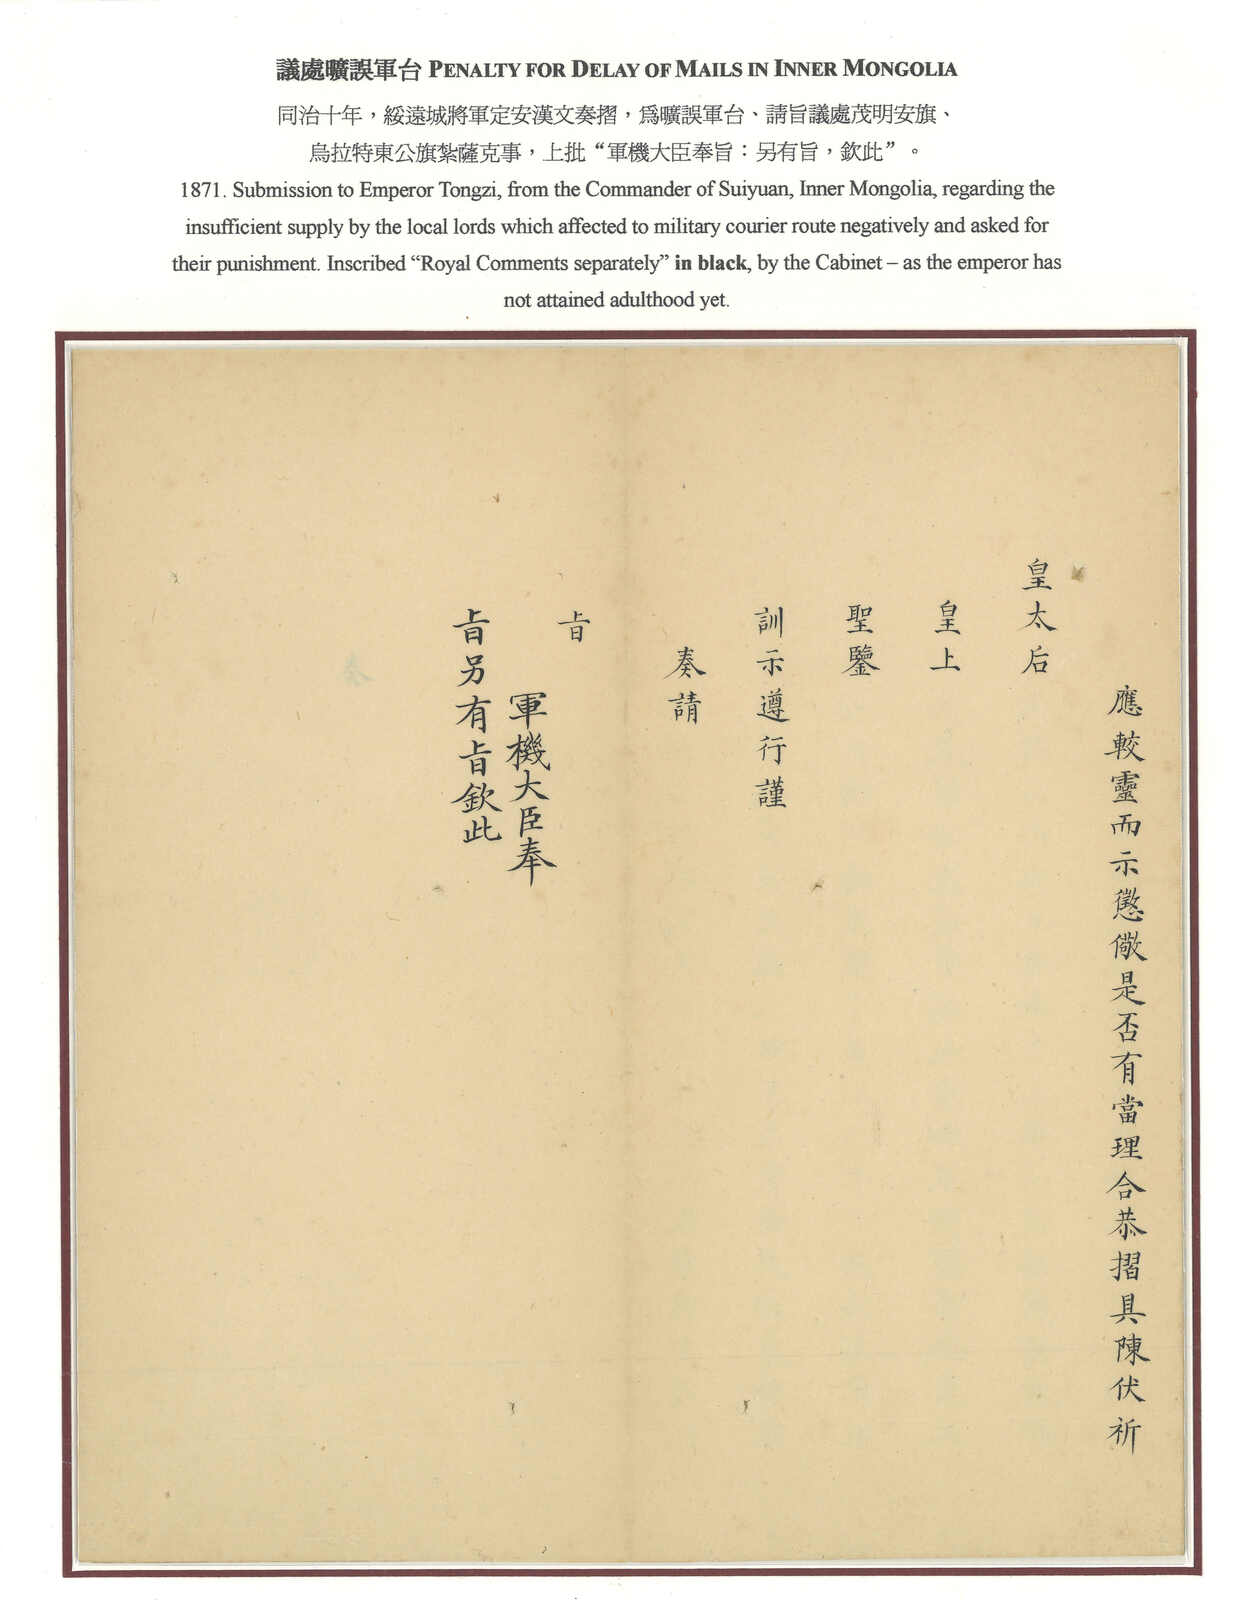 議處曠誤軍台 PENALTY FOR DELAY OF MAILS IN INNER MONGOLIA
同治十年，綏遠城將軍定安漢文奏摺，爲曠誤軍台、請旨議處茂明安旗、
烏拉特東公旗紮薩克事，上批“軍機大臣奉旨：另有旨，欽此”。
1871. Submission to Emperor Tongzi, from the Commander of Suiyuan, Inner Mongolia, regarding the
insufficient supply by the local lords which affected to military courier route negatively and asked for
their punishment. Inscribed “Royal Comments separately” in black, by the Cabinet – as the emperor has
not attained adulthood yet.
應較靈而示懲儆是否有當理合恭摺具陳伏祈
皇太后
皇上
聖鑒
訓示遵行謹
奏請
旨
軍機大臣奉
旨另有旨欽此